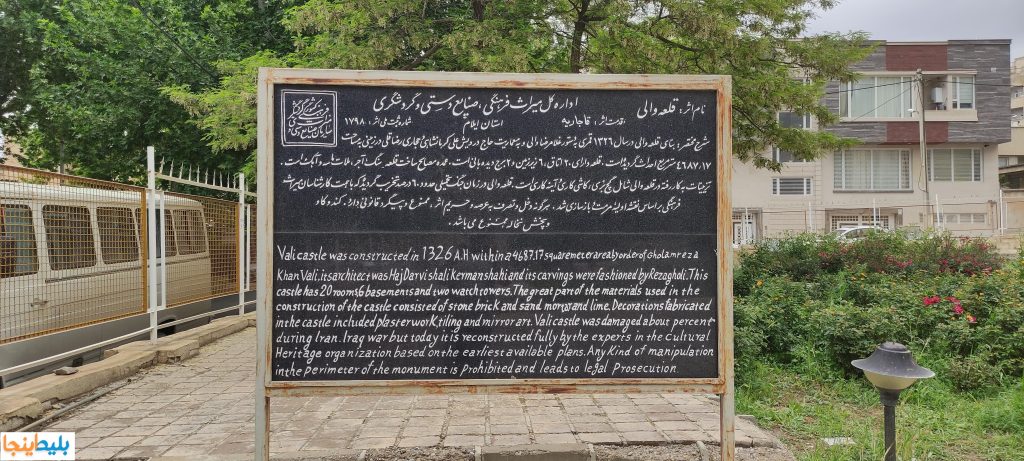 اداره کل میراث فرهنگی، صنایع دستی و گردشگری
استان ایلام
نام اثر: قلعه والی
قدمت اثر: قاجاریه
شماره ثبت ملی اثر: ۱۷۹۸
شرح مختصر: بنای قلعه والی در سال ۱۳۲۶ قمری به دستور غلامرضا خان والی و به معماری حاج درویش علی کرمانشاهی و حجاری رضاقلی در زمینی به مساحت
۴۶۸۷.۱۷ متر مربع احداث گردیده است. قلعه دارای ۲۰ اتاق، ۶ زیرزمین و ۲ برج دیده بانی است. عمده مصالح ساخت قلعه سنگ آجر، ملات ماسه و آهک است.
تزیینات به کار رفته در قلعه والی شامل گچبری، کاشی کاری و آینه کاری است. قلعه والی در زمان جنگ تحمیلی حدود ۶۰ درصد تخریب گردید که با همت کارشناسان میراث
فرهنگی بر اساس نقشه اولیه مرمت و بازسازی شد. هرگونه دخل و تصرف به عرصه و حریم اثر، ممنوع و پیگرد قانونی دارد. کنده کاری
و پخش نخاله ممنوع می باشد.
Vali castle was constructed in 1326 A.H within a 4687.17 square meter area by order of Gholamreza
Khan Vali, its architect was Haj Darvishali kermanshahi and its carvings were fashioned by Rezagholi. This
castle has 20 rooms, 6 basements and two watch towers. The great part of the materials used in the
construction of the castle consisted of stone brick and sand mortar and lime. Decorations fabricated
in the castle included plaster work, tiling and mirror art. Vali castle was damaged about percent
during Iran. Iraq war but today it is reconstructed fully by the experts in the Cultural
Heritage organization based on the earliest available plans. Any Kind of manipulation
in the perimeter of the monument is Prohibited and leads to legal Prosecution.
بلیط اینجا